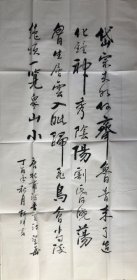 岱宗夫如何齊魯青未了造
化鍾神秀陰陽割昏曉蕩
胸生層雲入眦歸鳥會當凌
絕頂一覽眾山小
唐杜甫
丁酉秋月